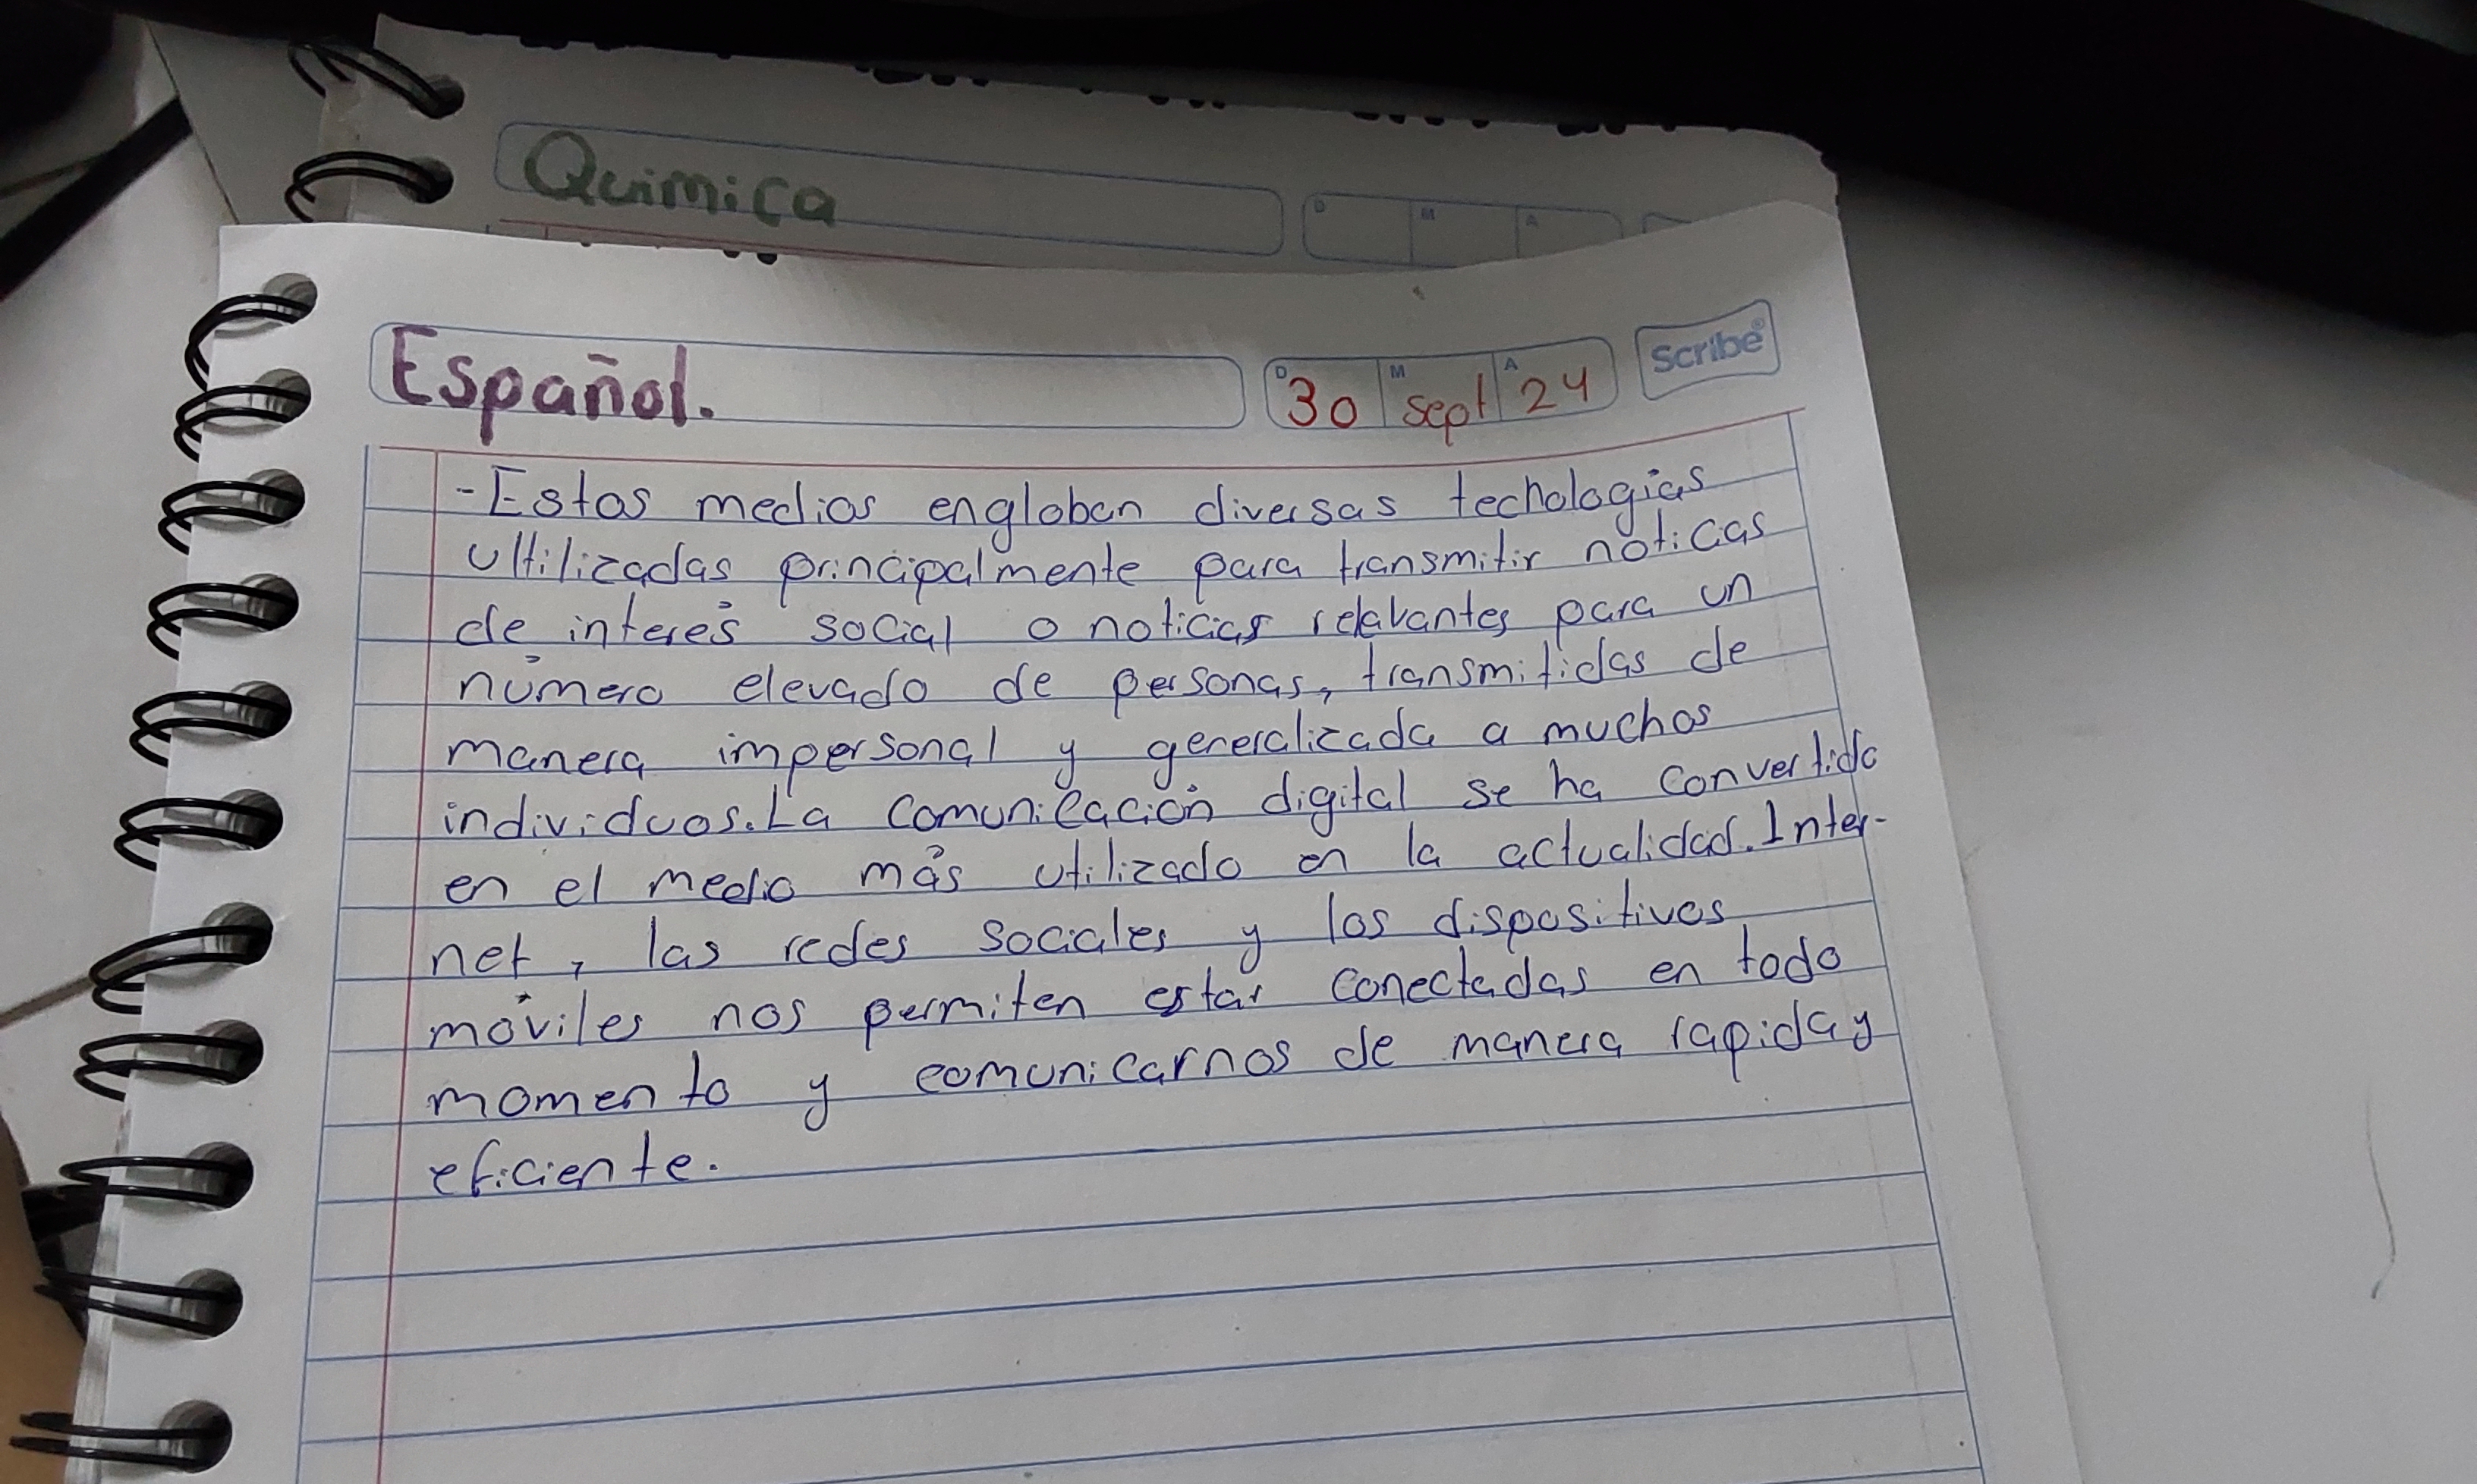 Quimica
D M A
Español.
D 30 M sept A 24
Scribe®
- Estos medios engloban diversas techologias
ultilizadas principalmente para transmitir noticas
de interés social o noticias relavantes para un
número elevado de personas, transmitidas de
manera impersonal y generalizada a muchos
individuos. La comunicación digital se ha convertido
en el medio más utilizado en la actualidad. Inter-
net, las redes sociales y los dispositivos
móviles nos permiten estar conectadas en todo
momento y comunicarnos de manera rapida y
eficiente.